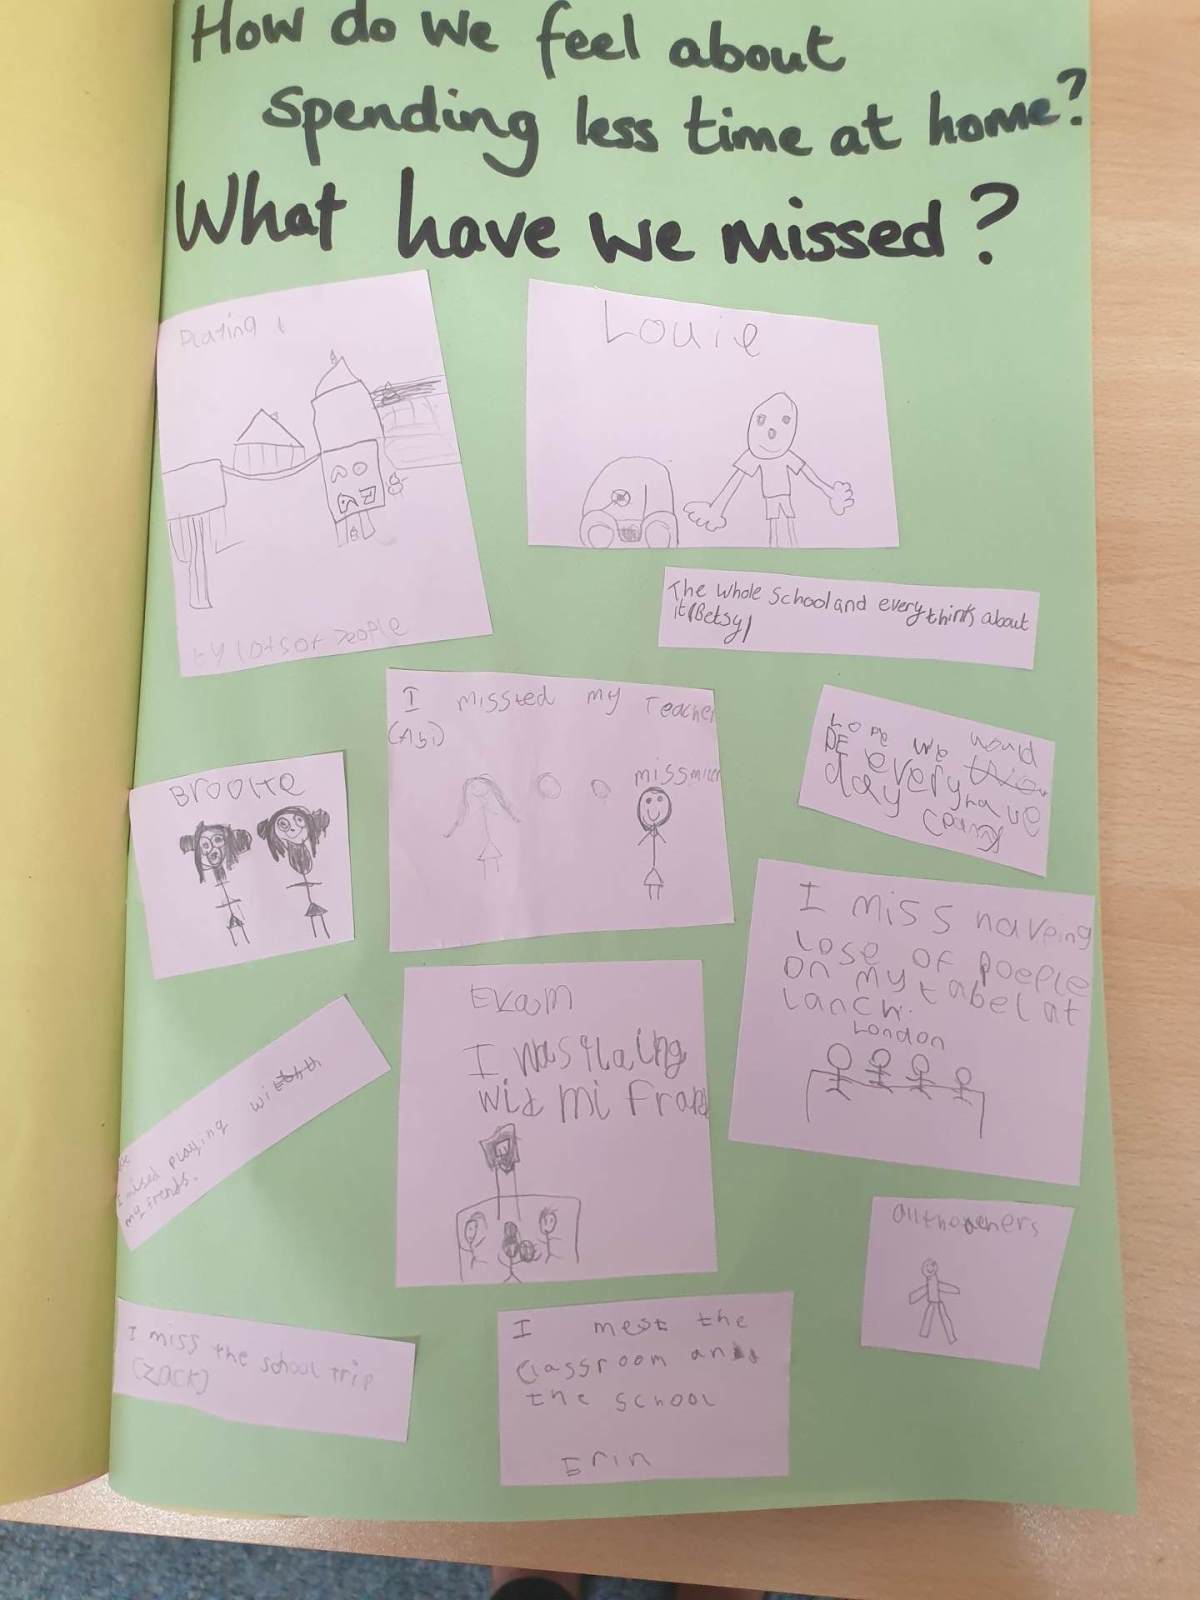 How do we feel about
spending less time at home?
What have we missed?
Plating
lotsof people
Louie
The whole school and every think about
it (Betsy)
I missted my Teacher
(Abi)
Brooke
would
PE every
day
I miss haveing
lose of poeple
on my tabel at
lanch.
London
I was
wit mi
I missed playing
my frends.
I miss the school trip
(Zack)
I
the
classroom
the school
Erin